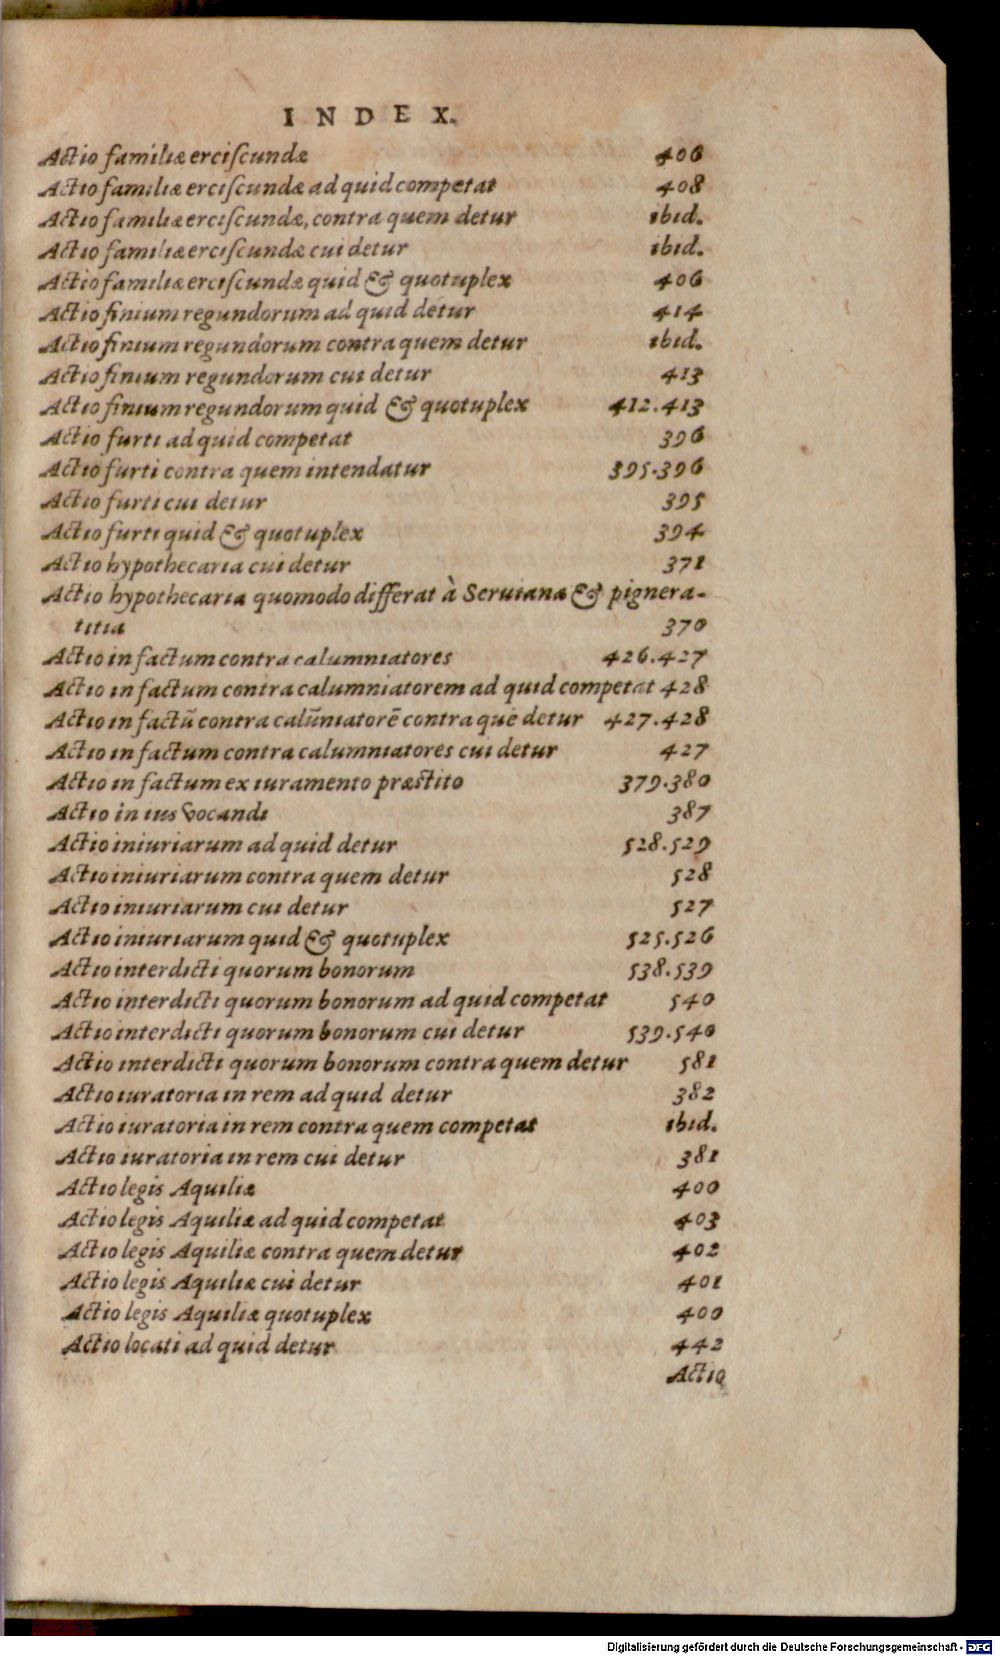 INDEX.
Actio familiæ erciſcundæ 406
Actio familiæ erciſcundæ ad quid competat 408
Actio familiæ erciſcundæ, contra quem detur ibid.
Actio familiæ erciſcundæ cui detur ibid.
Actio familiæ erciſcundæ quid & quotuplex 406
Actio finium regundorum ad quid detur 414
Actio finium regundorum contra quem detur ibid.
Actio finium regundorum cui detur 413
Actio finium regundorum quid & quotuplex 412.413
Actio furti ad quid competat 396
Actio furti contra quem intendatur 395.396
Actio furti cui detur 395
Actio furti quid & quotuplex 394
Actio hypothecaria cui detur 371
Actio hypothecaria quomodo differat à Seruiana & pignera-
titia 370
Actio in factum contra calumniatores 426.427
Actio in factum contra calumniatorem ad quid competat 428
Actio in factū contra calūniatorē contra quē detur 427.428
Actio in factum contra calumniatores cui detur 427
Actio in factum ex iuramento præstito 379.380
Actio in ius vocandi 387
Actio iniuriarum ad quid detur 528.529
Actio iniuriarum contra quem detur 528
Actio iniuriarum cui detur 527
Actio iniuriarum quid & quotuplex 525.526
Actio interdicti quorum bonorum 538.539
Actio interdicti quorum bonorum ad quid competat 540
Actio interdicti quorum bonorum cui detur 539.540
Actio interdicti quorum bonorum contra quem detur 581
Actio iuratoria in rem ad quid detur 382
Actio iuratoria in rem contra quem competat ibid.
Actio iuratoria in rem cui detur 381
Actio legis Aquiliæ 400
Actio legis Aquiliæ ad quid competat 403
Actio legis Aquiliæ contra quem detur 402
Actio legis Aquiliæ cui detur 401
Actio legis Aquiliæ quotuplex 400
Actio locati ad quid detur 442
Actio
Digitalisierung gefördert durch die Deutsche Forschungsgemeinschaft - DFG